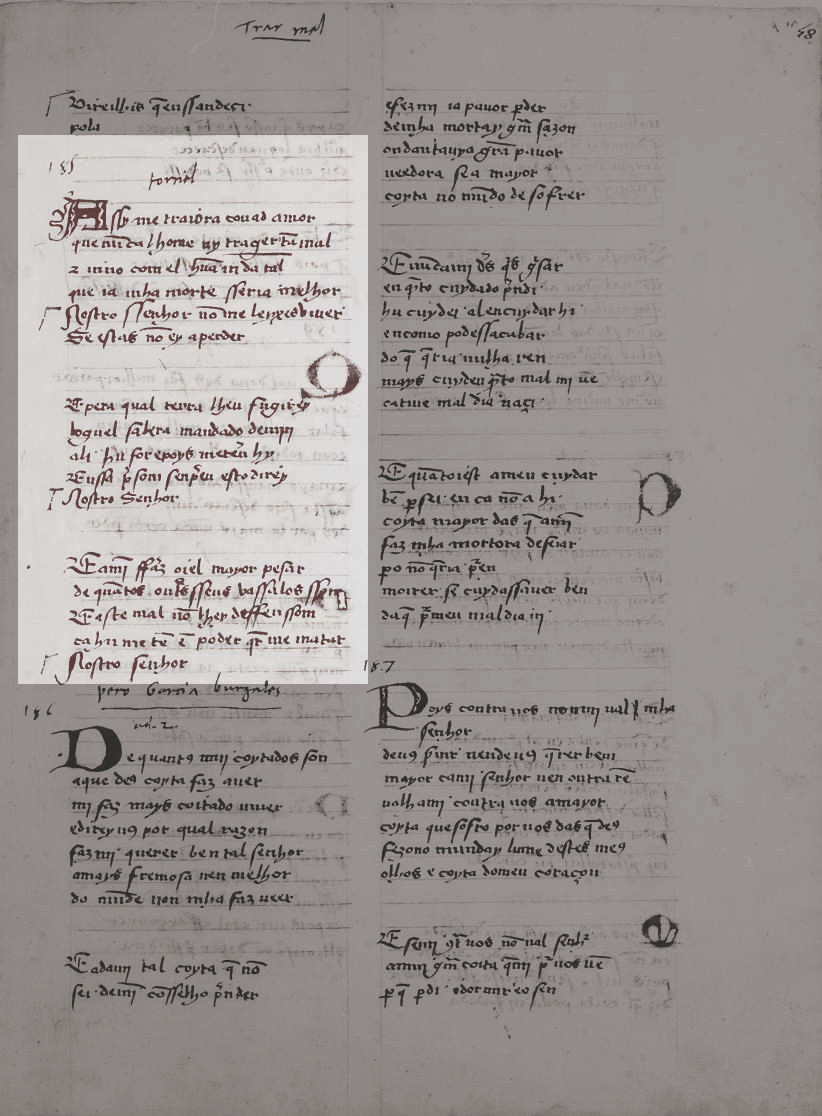 Trar mal
58
Vireilhis q̄ eussandeçi
pola
185
tornel
Assy me traiVora couad amor
que nūca lhome uy trager tā mal
z uiuo com el hūa ui da tal
que ia mha morte sseria melhor
Nostro Ssenhor nō me leyxes viuer
Se estas nō ey a perder
E pera qual terra lheu fugirey
loguel sabera mandado de mı̄
ali hu for e poys me teū hy
Eussa p̄ som senp̄eu esto direy
Nostro Senhor
E a mī ffaz oiel mayor pesar
de quātos ousseus vassalos
E aste mal nō lhey deffenssom
ca hu me tē ē poder q̄r me matar
Nostro senhor
pero Garcia burgales
186
De quantꝯ mı̄ coytados son
a que deꝯ coyta faz auer
mi faz mays coitado uiuer
e direy uꝯ por qual razon
faz mı̄ querer ben tal senhor
a mays fremosa nen melhor
do mūdo non mha faz ueer
E a dam tal coyta q̄ nō
sei de mī cōsselho p̄nder
e fez mı̄ ia pauor p̄der
de mha mortay gm̄ sazon
ond auia gm̄ pauor
ueedora sea mayor
coyta no mūdo de sofrer
E nūca mi ds̄ q̄s g̃sar
en q̃to cuydado p̄ndi
hu cuydei al en cuydar hi
en como podess acabar
do q̄ q̄ria nulha ren
mays cuyden p̄to mal mi uē
catiue mal dia naçi
E quāto ist a meu cuydar
bē p̱ sei eu ca nō a hi
coyta mayor das q̄ a mı̄
faz mha mort ora deseiar
po nō q̄ria p̄en
moirer se cuydassauer ben
da q̄ p̄ meu mal dia ui
187
Poys contra uos non mi ual mha
senhor
deuꝯ seruir nen de uꝯ q̄rer bem
mayor ca mī senhor nen outra rē
ualh a mi contra uos a mayor
coyta que sofro por uos das q̄ deꝯ
fezo no mūday lume destes meꝯ
olhos e coyta do meu coraçon
E se mi q̃t uos nō ual senhr
a mui gm̄ coita q̄ mı̄ p̄ uos uē
p̱ q̄ p̱di o dormir e o sen